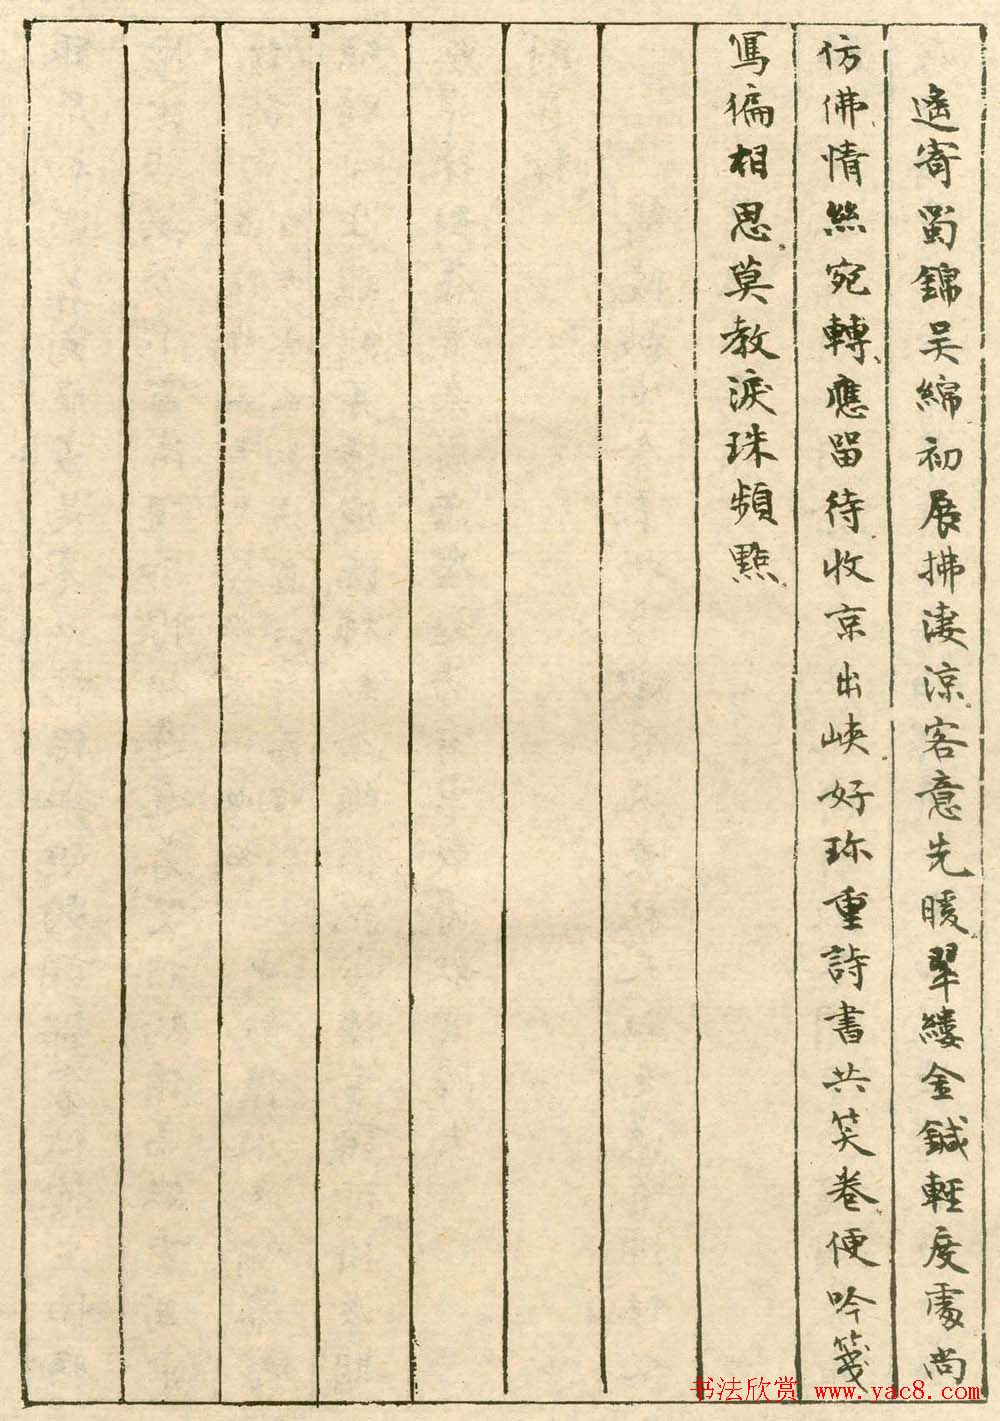 遙寄蜀錦吳綿初展拂淒涼客意先暖翠縷金鍼輕度處尚
仿佛情絲宛轉應留待收京出峽好珍重詩書共笑卷便吟箋
寫徧相思莫教淚珠頻點
书法欣赏 www.yac8.com